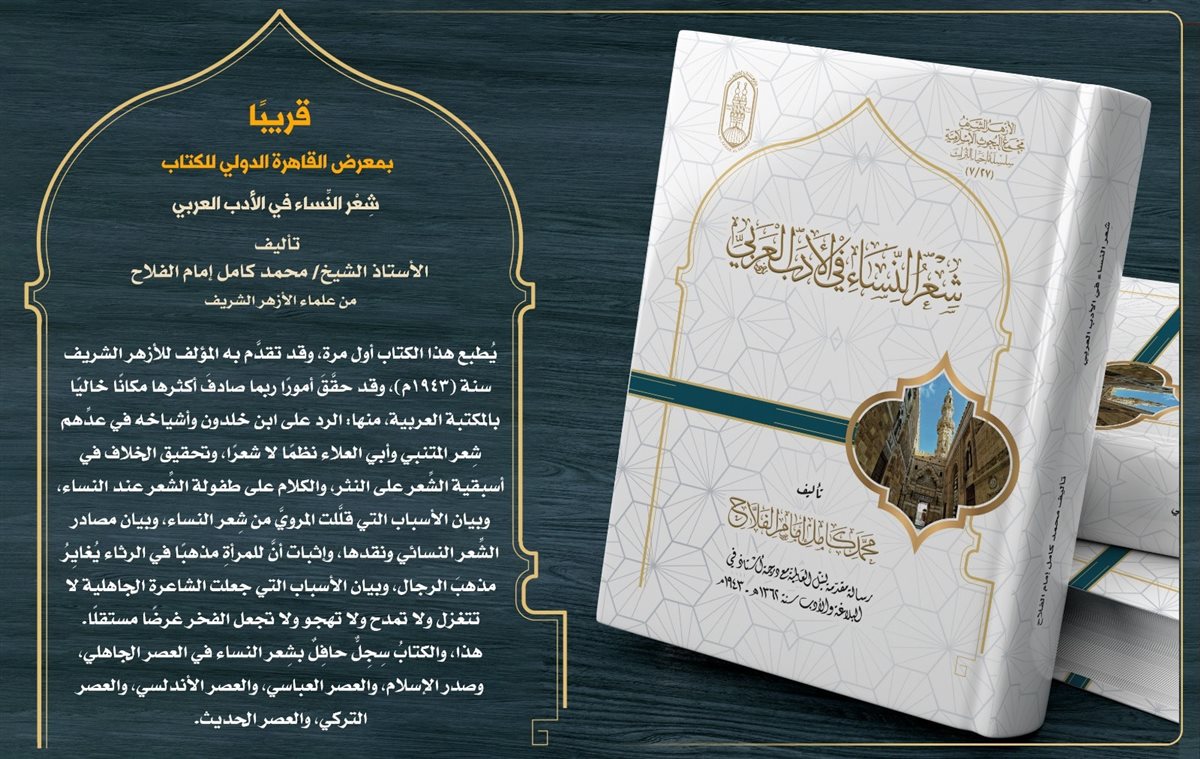 قريبًا
بمعرض القاهرة الدولي للكتاب
شِعْر النِّساء في الأدب العربي
تأليف
الأستاذ الشيخ/ محمد كامل إمام الفلاح
من علماء الأزهر الشريف
يُطبع هذا الكتاب أول مرة، وقد تقدَّم به المؤلف للأزهر الشريف
سنة (١٩٤٣م)، وقد حقَّقَ أمورًا ربما صادفَ أكثرها مكانًا خاليًا
بالمكتبة العربية، منها: الرد على ابن خلدون وأشياخه في عدِّهم
شِعر المتنبي وأبي العلاء نظمًا لا شعرًا، وتحقيق الخلاف في
أسبقية الشِّعر على النثر، والكلام على طفولة الشِّعر عند النساء،
وبيان الأسباب التي قلَّلت المرويَّ من شِعر النساء، وبيان مصادر
الشِّعر النسائي ونقدها، وإثبات أنَّ للمرأةِ مذهبًا في الرثاء يُغايِرُ
مذهبَ الرجال، وبيان الأسباب التي جعلت الشاعرة الجاهلية لا
تتغزل ولا تمدح ولا تهجو ولا تجعل الفخر غرضًا مستقلًا.
هذا، والكتابُ سِجِلٌّ حافِلٌ بشِعر النساء في العصر الجاهلي،
وصدر الإسلام، والعصر العباسي، والعصر الأندلسي، والعصر
التركي، والعصر الحديث.
الأزهر الشريف
مجمع البحوث الإسلامية
سلسلة إحياء التراث
(٧/٢٧)
شِعْرُ النِّسَاءِ فِي الأَدَبِ العَرَبِيِّ
تأليف
محمد كامل إمام الفلاح
رسالة مقدمة لنيل العالمية مع درجة أستاذ في
البلاغة والأدب سنة ١٣٦٢هـ - ١٩٤٣م
شعر النساء في الأدب العربي
تأليف محمد كامل إمام الفلاح